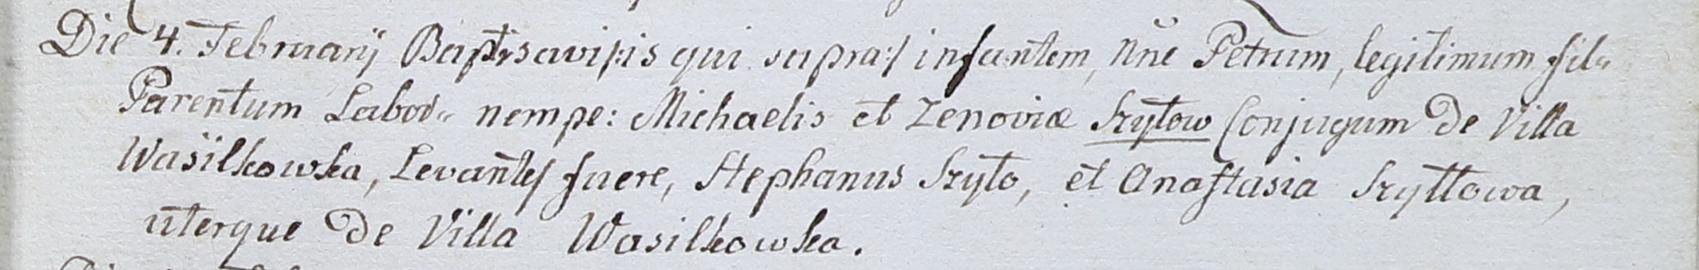 Die 4. Februarij Baptisavi /: is qui supra :/ infantem, Nne Petrum, legitimum fil:
Parentum Labor: nempe: Michaelis et Zenoviæ Szytow Conjugum de Villa
Wasilkowka, Levantes fuere, Stephanus Szyto, et Anastasia Szyttowa,
uterque de Villa Wasilkowka.